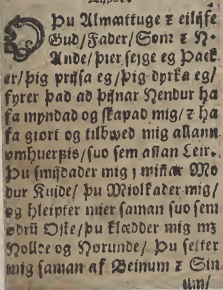 O Þu Almættuge z eilijfe
Gud/ Fader/ Sonr z H.
Ande/ þier seige eg Þack
er/ þig prijsa eg/ þig dyrka eg/
fyrer það ad þijnar Hendur ha
fa myndad og skapad mig/ z ha
fa giort og tilbwed mig allann
vmhuerfis/ suo sem annan Leir.
Þu smijdader mig j minnar Mo
dur Kuide/ þu Miolkader mig/
og hleipter mier saman suo sem
odrū Oste/ þu klædder mig mz
Holde og Hørunde/ Þu setter
mig saman af Beinum z Sin
um/